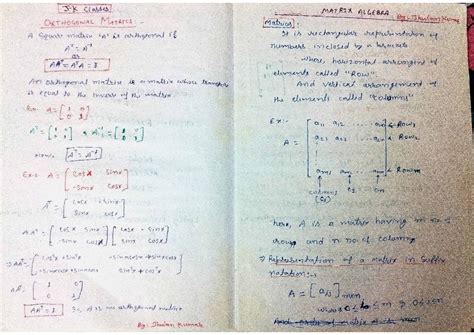 J.K Classes
ORTHOGONAL MATRICS -
A square matrix 'A' be orthogonal if
Aᵀ = A⁻¹
or
AAᵀ = AᵀA = I
An orthogonal matrix is a matrix whose transpose
is equal to the invers of the matrix.
Ex:- A = [1 0
0 1]
Now, Aᵀ = A⁻¹
Ex:- A = [cosx sinx
-sinx cosx]
Aᵀ = [cosx -sinx
sinx cosx]
AAᵀ = [cosx sinx
-sinx cosx] [cosx -sinx
sinx cosx]
⇒ AAᵀ = [cos²x+sin²x -sinxcosx+sinxcosx
-sinxcosx+sinxcosx sin²x+cos²x]
AAᵀ = [1 0
0 1]
AAᵀ = I So, A is an orthogonal matrix
By:
MATRIX ALGEBRA
By:
Matrics:
It is rectangular representation of
numbers inclosed by a brackets
where horizontal arrangment of
elements called "Row".
And vertical arrangement of
the elements called "columns"
Ex:-
A = [a₁₁ a₁₂ ... a₁ₙ ← Row₁
a₂₁ a₂₂ ... a₂ₙ ← Row₂
aₘ₁ aₘ₂ ... aₘₙ] ← Rowₘ
columns
(C₁) C₂ Cₙ
here, A is a matrix having m no of
rows and n no of column
⇒ Representation of a matrix in suffix
notation:-
A = [aᵢⱼ]ₘₓₙ